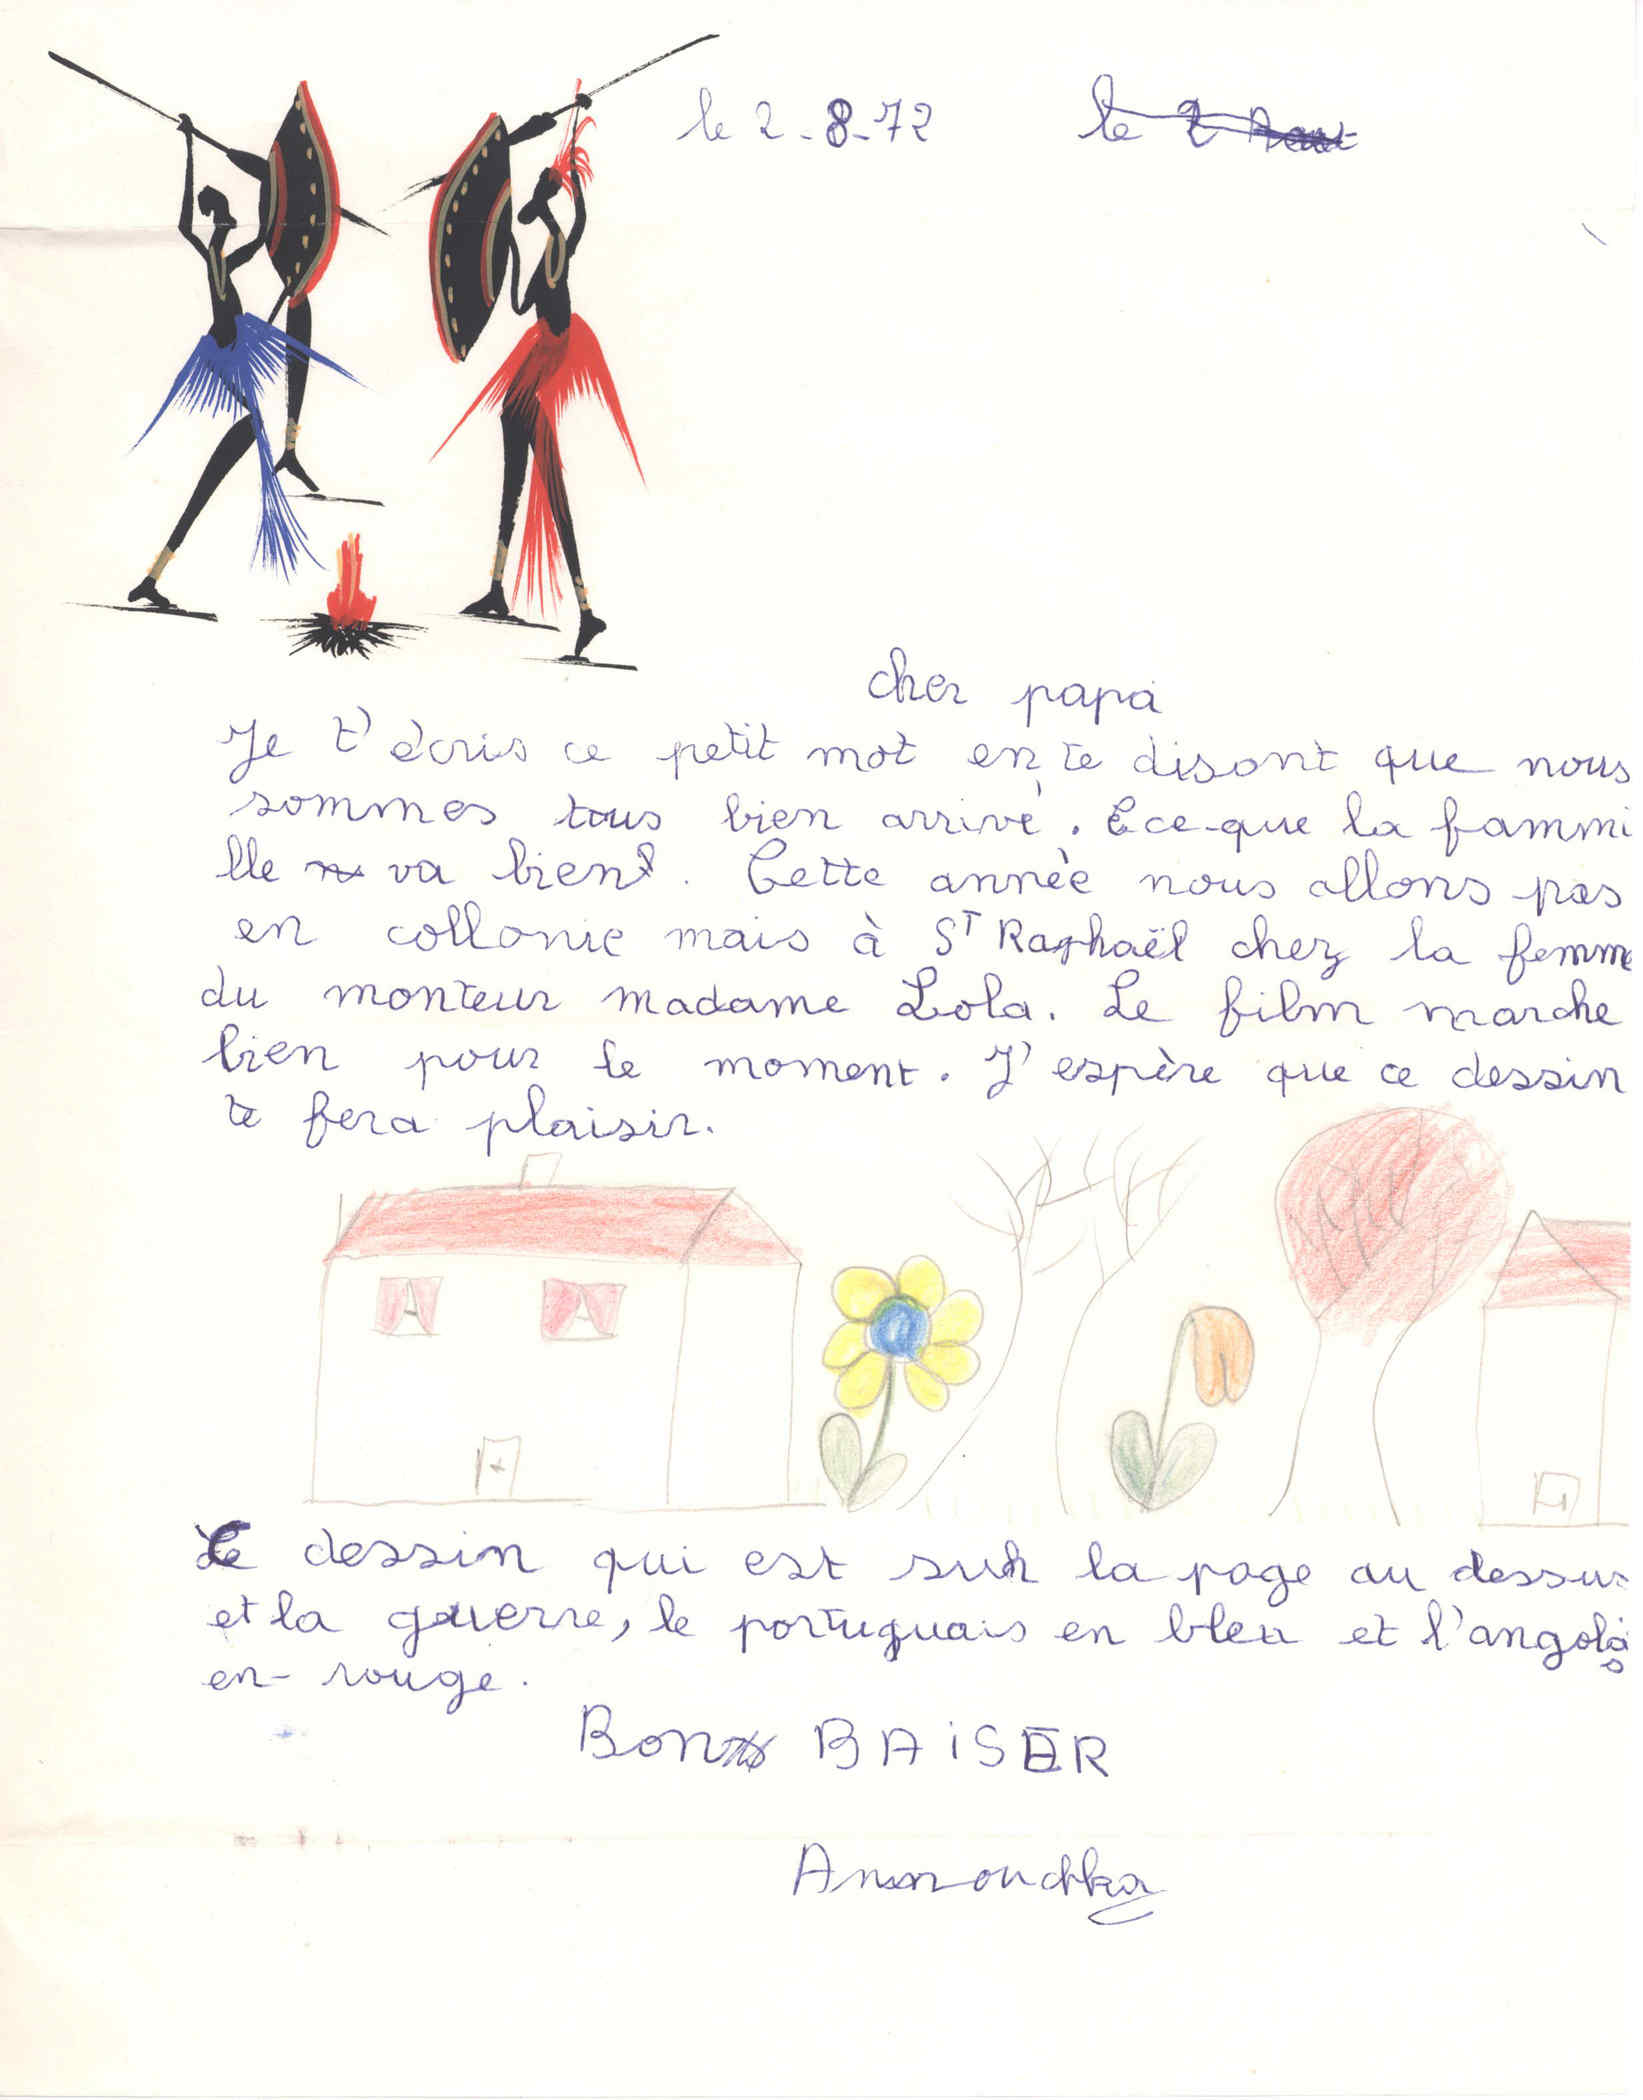 le 2-8-72 le 2 Aout
cher papa
Je t'écris ce petit mot en te disont que nous
sommes tous bien arrivé. Ece-que la fammi
lle va bien. Cette année nous allons pas
en collonie mais à ST Raphaël chez la femme
du monteur madame Lola. Le film marche
bien pour le moment. J'espère que ce dessin
te fera plaisir.
Le dessin qui est sur la page au dessus
et la guerre, le portuguais en bleu et l'angolas
en- rouge.
Bon BAiSER
Annouchka